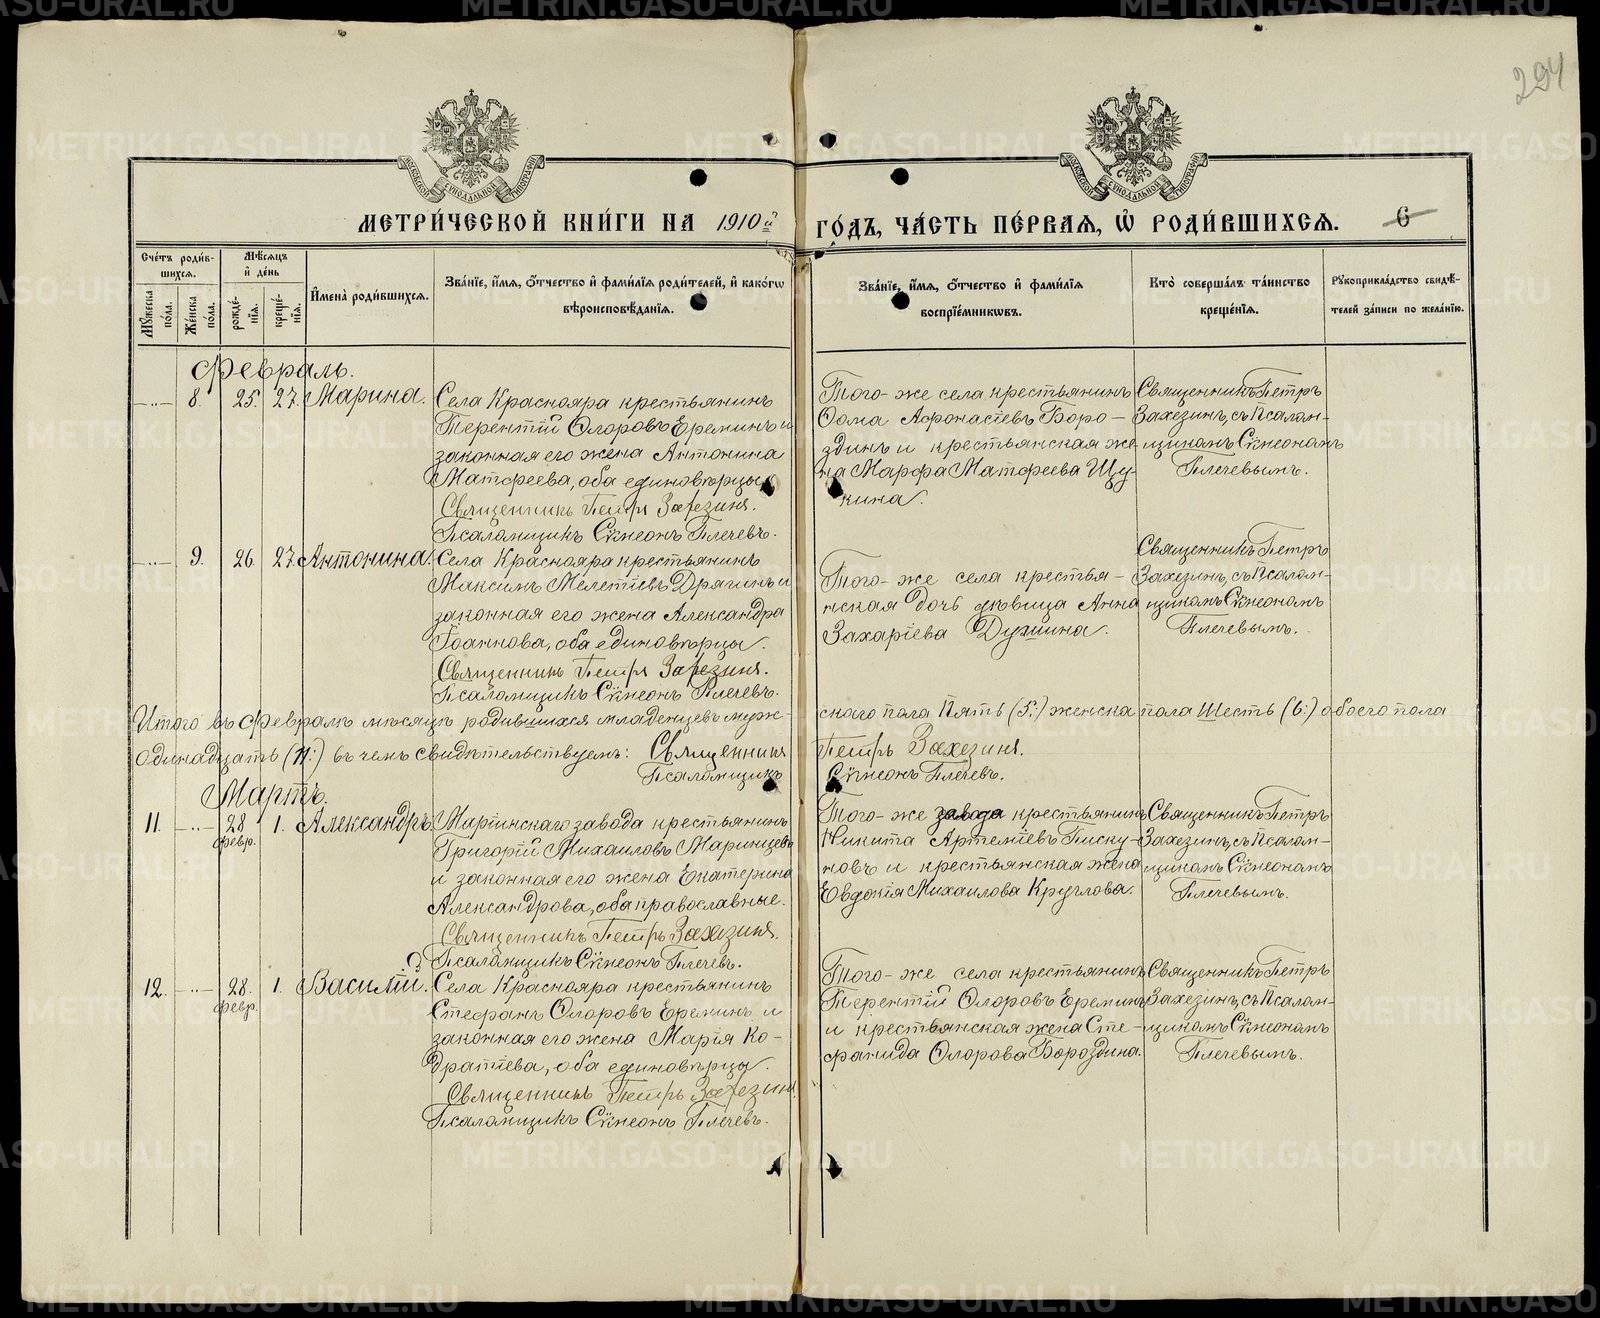 294
МЕТРИ́ЧЕСКОЙ КНИ́ГИ НА 1910й ГО́ДЪ, ЧА́СТЬ ПЕ́РВАЯ, Ѡ҆ РОДИ́ВШИХСЯ. 6
Сче́тъ роди́вшихся.
Мѹ́жеска по́ла.
Же́нска по́ла.
Мѣ́сяцъ и҆ де́нь
рожде́нїя.
креще́нїя.
И҆мена̀ роди́вшихся.
Зва́нїе, и҆́мя, ѻ҆́тчество и҆ фами́лїя роди́телей, и҆ како́гѡ
вѣроисповѣ́данїя.
Зва́нїе, и҆́мя, ѻ҆́тчество и҆ фами́лїя
воспрїе́мникѡвъ.
Кто̀ соверша́лъ та́инство
креще́нїя.
Рѹкоприкла́дство свидѣ́-
телей за́писи по жела́нїю.
Февраль.
8. 25. 27. Марина.
Села Краснояра крестьянинъ
Терентій Флоровъ Ереминъ и
законная его жена Антонина
Матѳеева, оба единовѣрцы.
Священникъ Петръ Захезинъ.
Псаломщикъ Сѵмеонъ Плечевъ.
Того-же села крестьянинъ
Ѳома Аѳонасіевъ Боро-
здинъ и крестьянская же-
на Марфа Матѳеева Щу-
кина.
Священникъ Петръ
Захезинъ, съ Псалом-
щикомъ Сѵмеономъ
Плечевымъ.
9. 26. 27. Антонина.
Села Краснояра крестьянинъ
Максимъ Мелетіевъ Дрягинъ и
законная его жена Александра
Іоаннова, оба единовѣрцы.
Священникъ Петръ Захезинъ.
Псаломщикъ Сѵмеонъ Плечевъ.
Того-же села крестья-
нская дочь дѣвица Анна
Захаріева Душина.
Священникъ Петръ
Захезинъ, съ Псалом-
щикомъ Сѵмеономъ
Плечевымъ.
Итого въ Февралѣ мѣсяцѣ родившихся младенцевъ муж-
скаго пола Пять (5:) женска пола Шесть (6:) обоего пола
одинадцать (11:) въ чемъ свидѣтельствуемъ: Священникъ
Петръ Захезинъ.
Псаломщикъ
Сѵмеонъ Плечевъ.
Мартъ.
11. 28 февр. 1. Александръ.
Маріинскаго завода крестьянинъ
Григорій Михаиловъ Маринцевъ
и законная его жена Екатерина
Александрова, оба православные.
Священникъ Петръ Захезинъ.
Псаломщикъ Сѵмеонъ Плечевъ.
Того-же завода крестьянинъ
Никита Артеміевъ Писку-
новъ и крестьянская жена
Евдокія Михаилова Круглова.
Священникъ Петръ
Захезинъ, съ Псалом-
щикомъ Сѵмеономъ
Плечевымъ.
12. 28. февр. 1. Василій.
Села Краснояра крестьянинъ
Стефанъ Флоровъ Ереминъ и
законная его жена Марія Ко-
дратіева, оба единовѣрцы.
Священникъ Петръ Захезинъ.
Псаломщикъ Сѵмеонъ Плечевъ.
Того-же села крестьянинъ
Терентій Флоровъ Ереминъ
и крестьянская жена Сте-
фанида Флорова Бороздина.
Священникъ Петръ
Захезинъ, съ Псалом-
щикомъ Сѵмеономъ
Плечевымъ.
METRIKI.GASO-URAL.RU